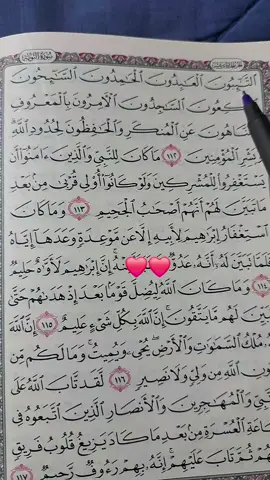 سورة التوبة
التَّٰٓئِبُونَ الْعَٰبِدُونَ الْحَٰمِدُونَ السَّٰٓئِحُونَ
الرَّٰكِعُونَ السَّٰجِدُونَ الْءَامِرُونَ بِالْمَعْرُوفِ
وَالنَّاهُونَ عَنِ الْمُنكَرِ وَالْحَٰفِظُونَ لِحُدُودِ اللَّهِ
وَبَشِّرِ الْمُؤْمِنِينَ ١١٢ مَا كَانَ لِلنَّبِيِّ وَالَّذِينَ ءَامَنُوٓا أَن
يَسْتَغْفِرُوا لِلْمُشْرِكِينَ وَلَوْ كَانُوٓا أُولِي قُرْبَىٰ مِنۢ بَعْدِ
مَا تَبَيَّنَ لَهُمْ أَنَّهُمْ أَصْحَٰبُ الْجَحِيمِ ١١٣ وَمَا كَانَ
اسْتِغْفَارُ إِبْرَٰهِيمَ لِأَبِيهِ إِلَّا عَن مَّوْعِدَةٍ وَعَدَهَآ إِيَّاهُ
فَلَمَّا تَبَيَّنَ لَهُۥٓ أَنَّهُۥ عَدُوٌّ إِنَّ إِبْرَٰهِيمَ لَأَوَّٰهٌ حَلِيمٌ
١١٤ وَمَا كَانَ اللَّهُ لِيُضِلَّ قَوْمًۢا بَعْدَ إِذْ هَدَىٰهُمْ حَتَّىٰ
يُبَيِّنَ لَهُم مَّا يَتَّقُونَ ۚ إِنَّ اللَّهَ بِكُلِّ شَيْءٍ عَلِيمٌ ١١٥ إِنَّ اللَّهَ
لَهُۥ مُلْكُ السَّمَٰوَٰتِ وَالْأَرْضِ ۖ يُحْيِۦ وَيُمِيتُ ۚ وَمَا لَكُم مِّن
دُونِ اللَّهِ مِن وَلِيٍّ وَلَا نَصِيرٍ ١١٦ لَّقَد تَّابَ اللَّهُ عَلَى
النَّبِيِّ وَالْمُهَٰجِرِينَ وَالْأَنصَارِ الَّذِينَ اتَّبَعُوهُ فِي
سَاعَةِ الْعُسْرَةِ مِنۢ بَعْدِ مَا كَادَ يَزِيغُ قُلُوبُ فَرِيقٍ
مِّنْهُمْ ثُمَّ تَابَ عَلَيْهِمْ ۚ إِنَّهُۥ بِهِمْ رَءُوفٌ رَّحِيمٌ ١١٧